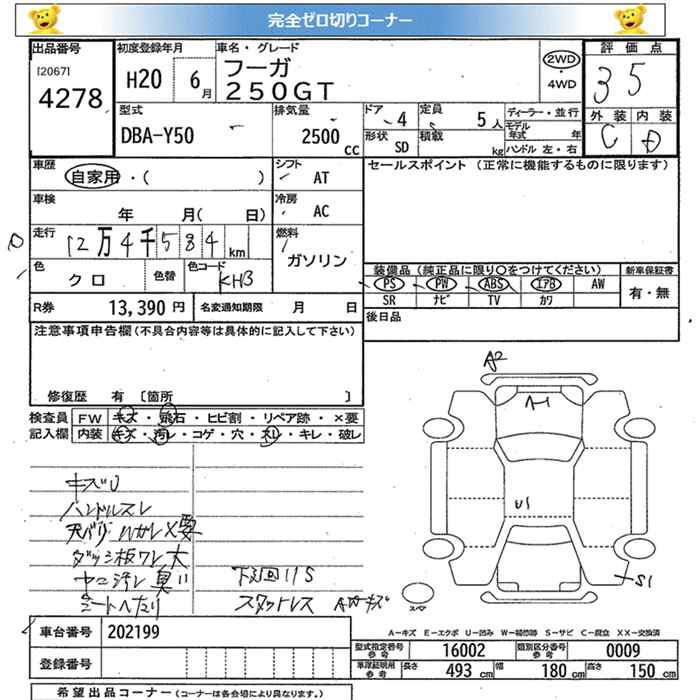 完全ゼロ切りコーナー
出品番号 初度登録年月 車名・グレード 評価点
[2067] 4278 H20 6月 フーガ 250GT 2WD・4WD 35
型式 排気量 ドア 4 定員 5人 ディーラー・並行 外装 内装
DBA-Y50 2500cc 形状 SD 積載 kg モデル年式 年 ハンドル 左・右 C D
車歴 自家用・( ) シフト AT セールスポイント (正常に機能するものに限ります)
車検 年 月( 日) 冷房 AC
走行 12万4千584km 燃料 ガソリン
色 クロ 色替 色コード KH3 装備品 (純正品に限り○をつけてください) 新車保証書
PS PW ABS エアB AW 有・無
R券 13,390円 名変通知期限 月 日 SR ナビ TV カワ
注意事項申告欄(不具合内容等は具体的に記入して下さい) 後日品
修復歴 有 [箇所 ]
検査員 FW キズ・飛石・ヒビ割・リペア跡・×要
記入欄 内装 キズ・汚レ・コゲ・穴・ネレ・キレ・破レ
A2
A1
U1
S1
キズU
ハンドルスレ
天バリ ハガレ×要
ダッシ板ワレ大
ヤニ汚レ 臭い 下回りS
シートヘたり スタットレス AWキズ
スペア
車台番号 202199
A−キズ E−エクボ U−凹み W−補修跡 S−サビ C−腐食 XX−交換済
登録番号
型式指定番号参考 16002 類別区分番号参考 0009
車庫証明用参考 長さ 493cm 幅 180cm 高さ 150cm
希望出品コーナー(コーナーは各会場により異なります。)